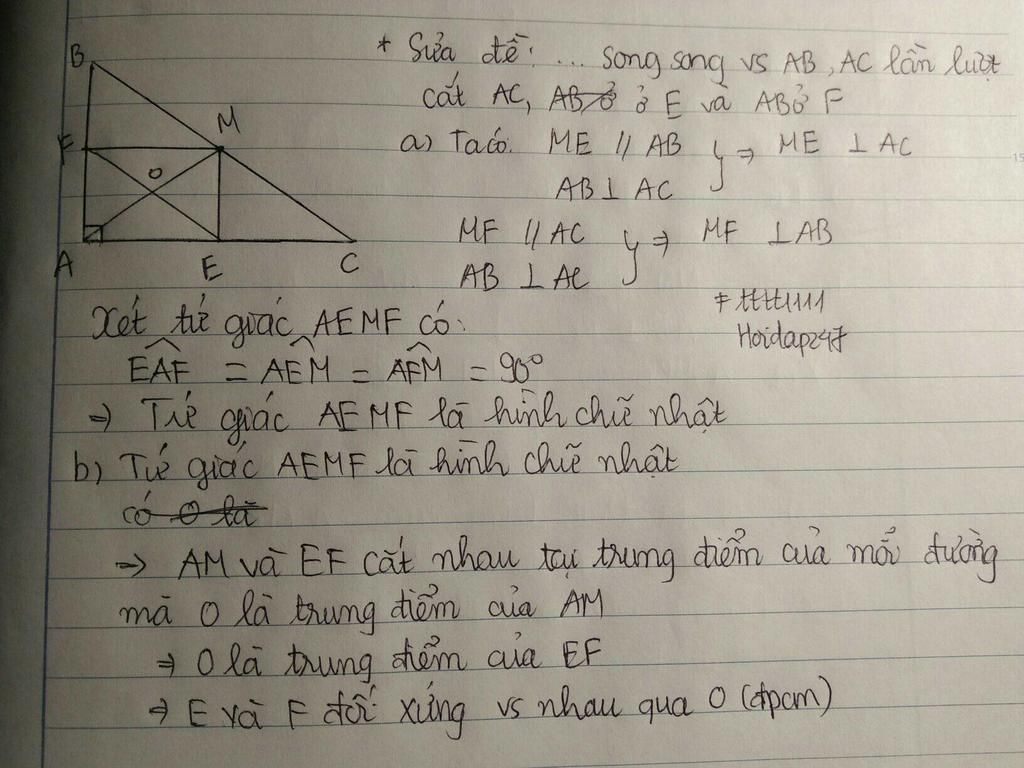 * Sửa đề: ... song song vs AB, AC lần lượt
cắt AC, ở E và AB ở F
B
M
F
O
A
E
C
a) Ta có: ME // AB } ⇒ ME ⊥ AC
AB ⊥ AC
MF // AC } ⇒ MF ⊥ AB
AB ⊥ AC
Hoidap247
Xét tứ giác AEMF có:
EAF = AEM = AFM = 90°
⇒ Tứ giác AEMF là hình chữ nhật
b) Tứ giác AEMF là hình chữ nhật
có O là
⇒ AM và EF cắt nhau tại trung điểm của mỗi đường
mà O là trung điểm của AM
⇒ O là trung điểm của EF
⇒ E và F đối xứng vs nhau qua O (đpcm)